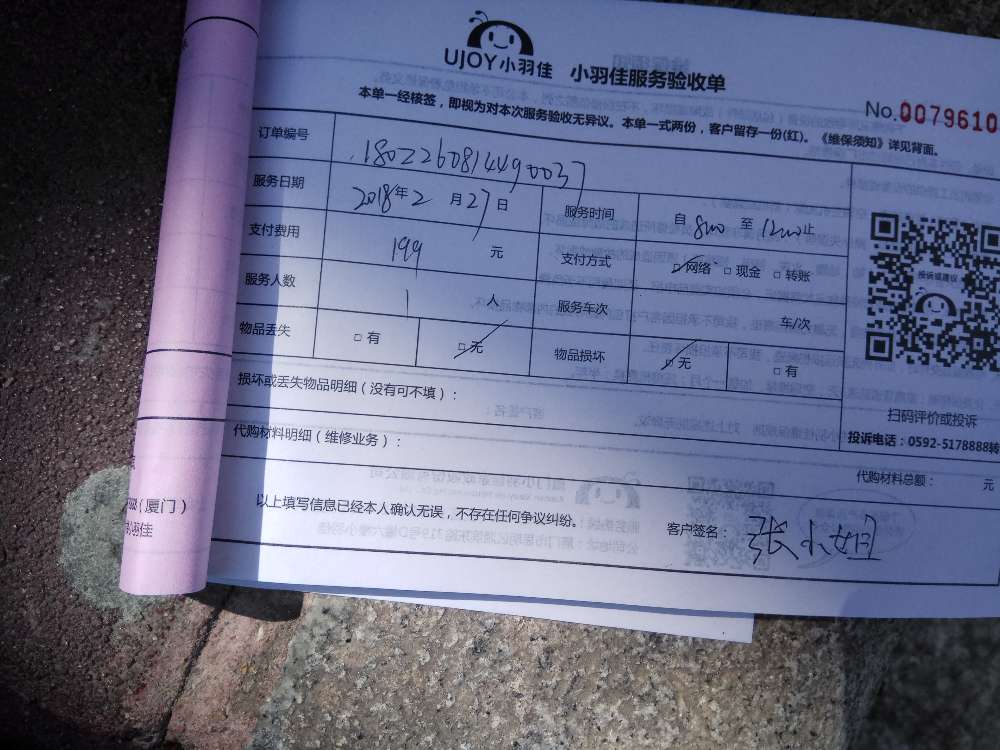 UJOY小羽佳 小羽佳服务验收单
No.0079610
本单一经核签，即视为对本次服务验收无异议。本单一式两份，客户留存一份(红)。《维保须知》详见背面。
订单编号 1802260814490037
服务日期 2018年2月27日 服务时间 自800至1200止
支付费用 199 元 支付方式 □网络 □现金 □转账
服务人数 1 人 服务车次 车/次
物品丢失 □有 □无 物品损坏 □无 □有
投诉或建议
扫码评价或投诉
投诉电话：0592-5178888转
损坏或丢失物品明细（没有可不填）：
代购材料明细（维修业务）：
代购材料总额： 元
以上填写信息已经本人确认无误，不存在任何争议纠纷。
客户签名： 张小姐
(厦门)
羽佳